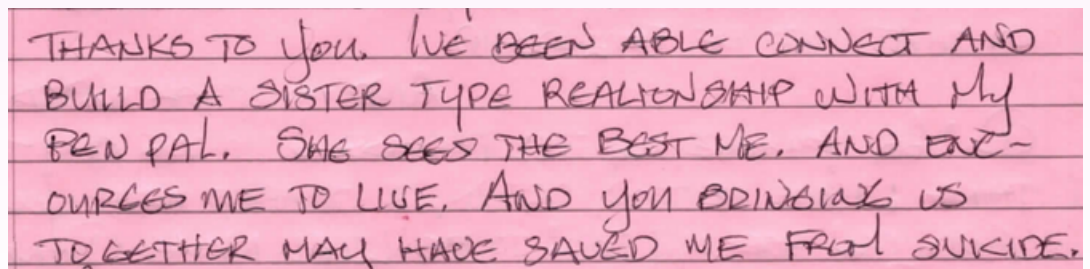 THANKS TO you. I'VE BEEN ABLE CONNECT AND
BUILD A SISTER TYPE REALIONSHIP WITH My
PEN PAL. SHE SEES THE BEST ME. AND ENC-
OURGES ME TO LIVE. AND you BRINGING US
TOGETHER MAY HAVE SAVED ME FROM SUICIDE.